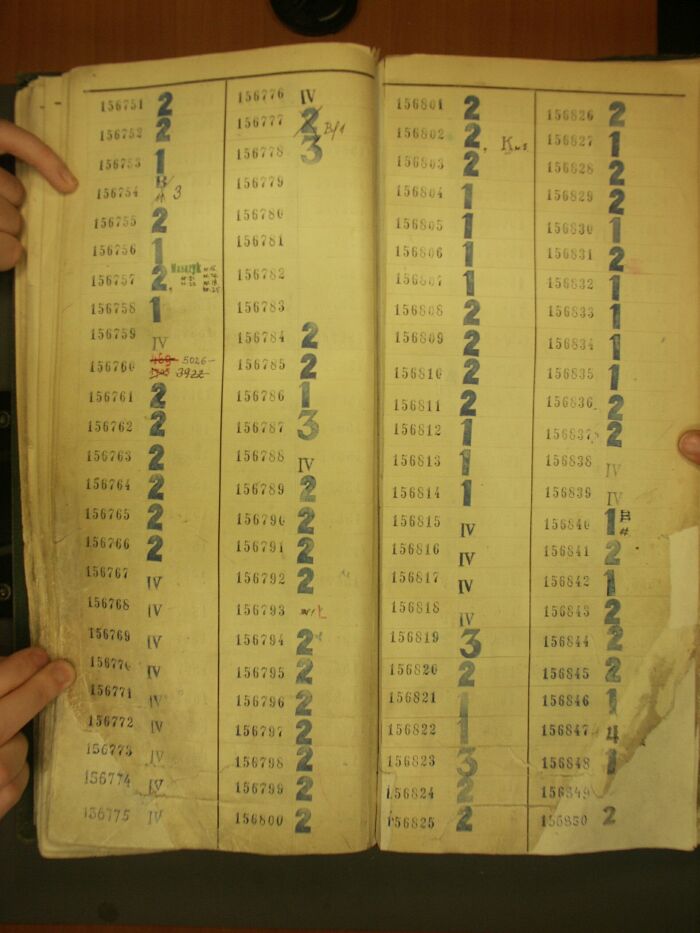 156751 2
156752 2
156753 1
156754 B/ 3
156755 2
156756 1
156757 2
156758 1
156759 IV
156760 5026-
3922
156761 2
156762 2
156763 2
156764 2
156765 2
156766 2
156767 IV
156768 IV
156769 IV
156770 IV
156771 IV
156772 IV
156773 IV
156774 IV
156775 IV
156776 IV
156777 2 B/1
156778 3
156779
156780
156781
156782
156783
156784 2
156785 2
156786 1
156787 3
156788 IV
156789 2
156790 2
156791 2
156792 2
156793
156794 2
156795 2
156796 2
156797 2
156798 2
156799 2
156800 2
156801 2
156802 2
156803 2
156804 1
156805 1
156806 1
156807 1
156808 2
156809 2
156810 2
156811 2
156812 1
156813 1
156814 1
156815 IV
156816 IV
156817 IV
156818 IV
156819 3
156820 2
156821 1
156822 1
156823 3
156824 2
156825 2
156826 2
156827 1
156828 2
156829 2
156830 1
156831 2
156832 1
156833 1
156834 1
156835 1
156836 2
156837 2
156838 IV
156839 IV
156840 1
156841 2
156842 1
156843 2
156844 2
156845 2
156846 1
156847 4
156848 1
156849
156850 2